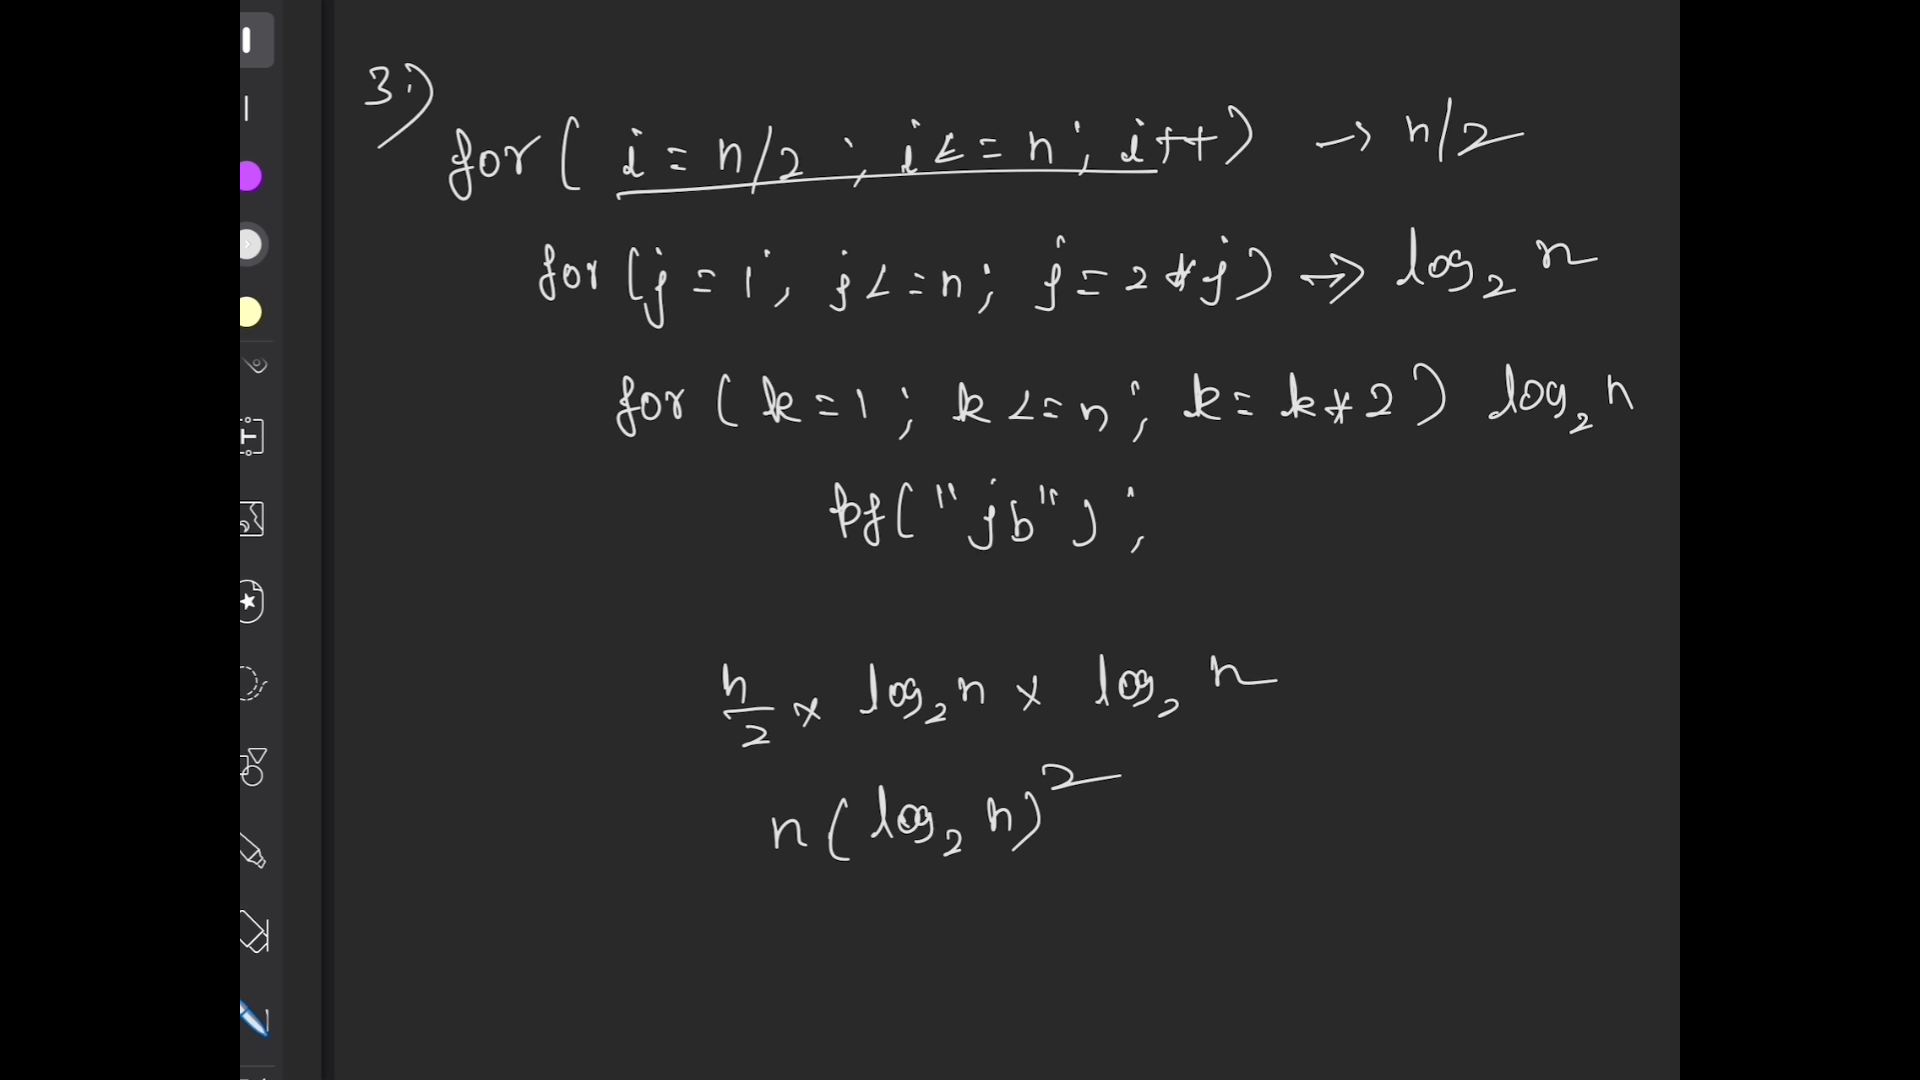 3.)
for( i = n/2 ; i <= n ; i++) → n/2
for (j = 1 ; j <= n ; j = 2 * j) → log₂ n
for ( k = 1 ; k <= n ; k = k * 2 ) log₂ n
pf("jb") ;
n/2 × log₂ n × log₂ n
n ( log₂ n)²